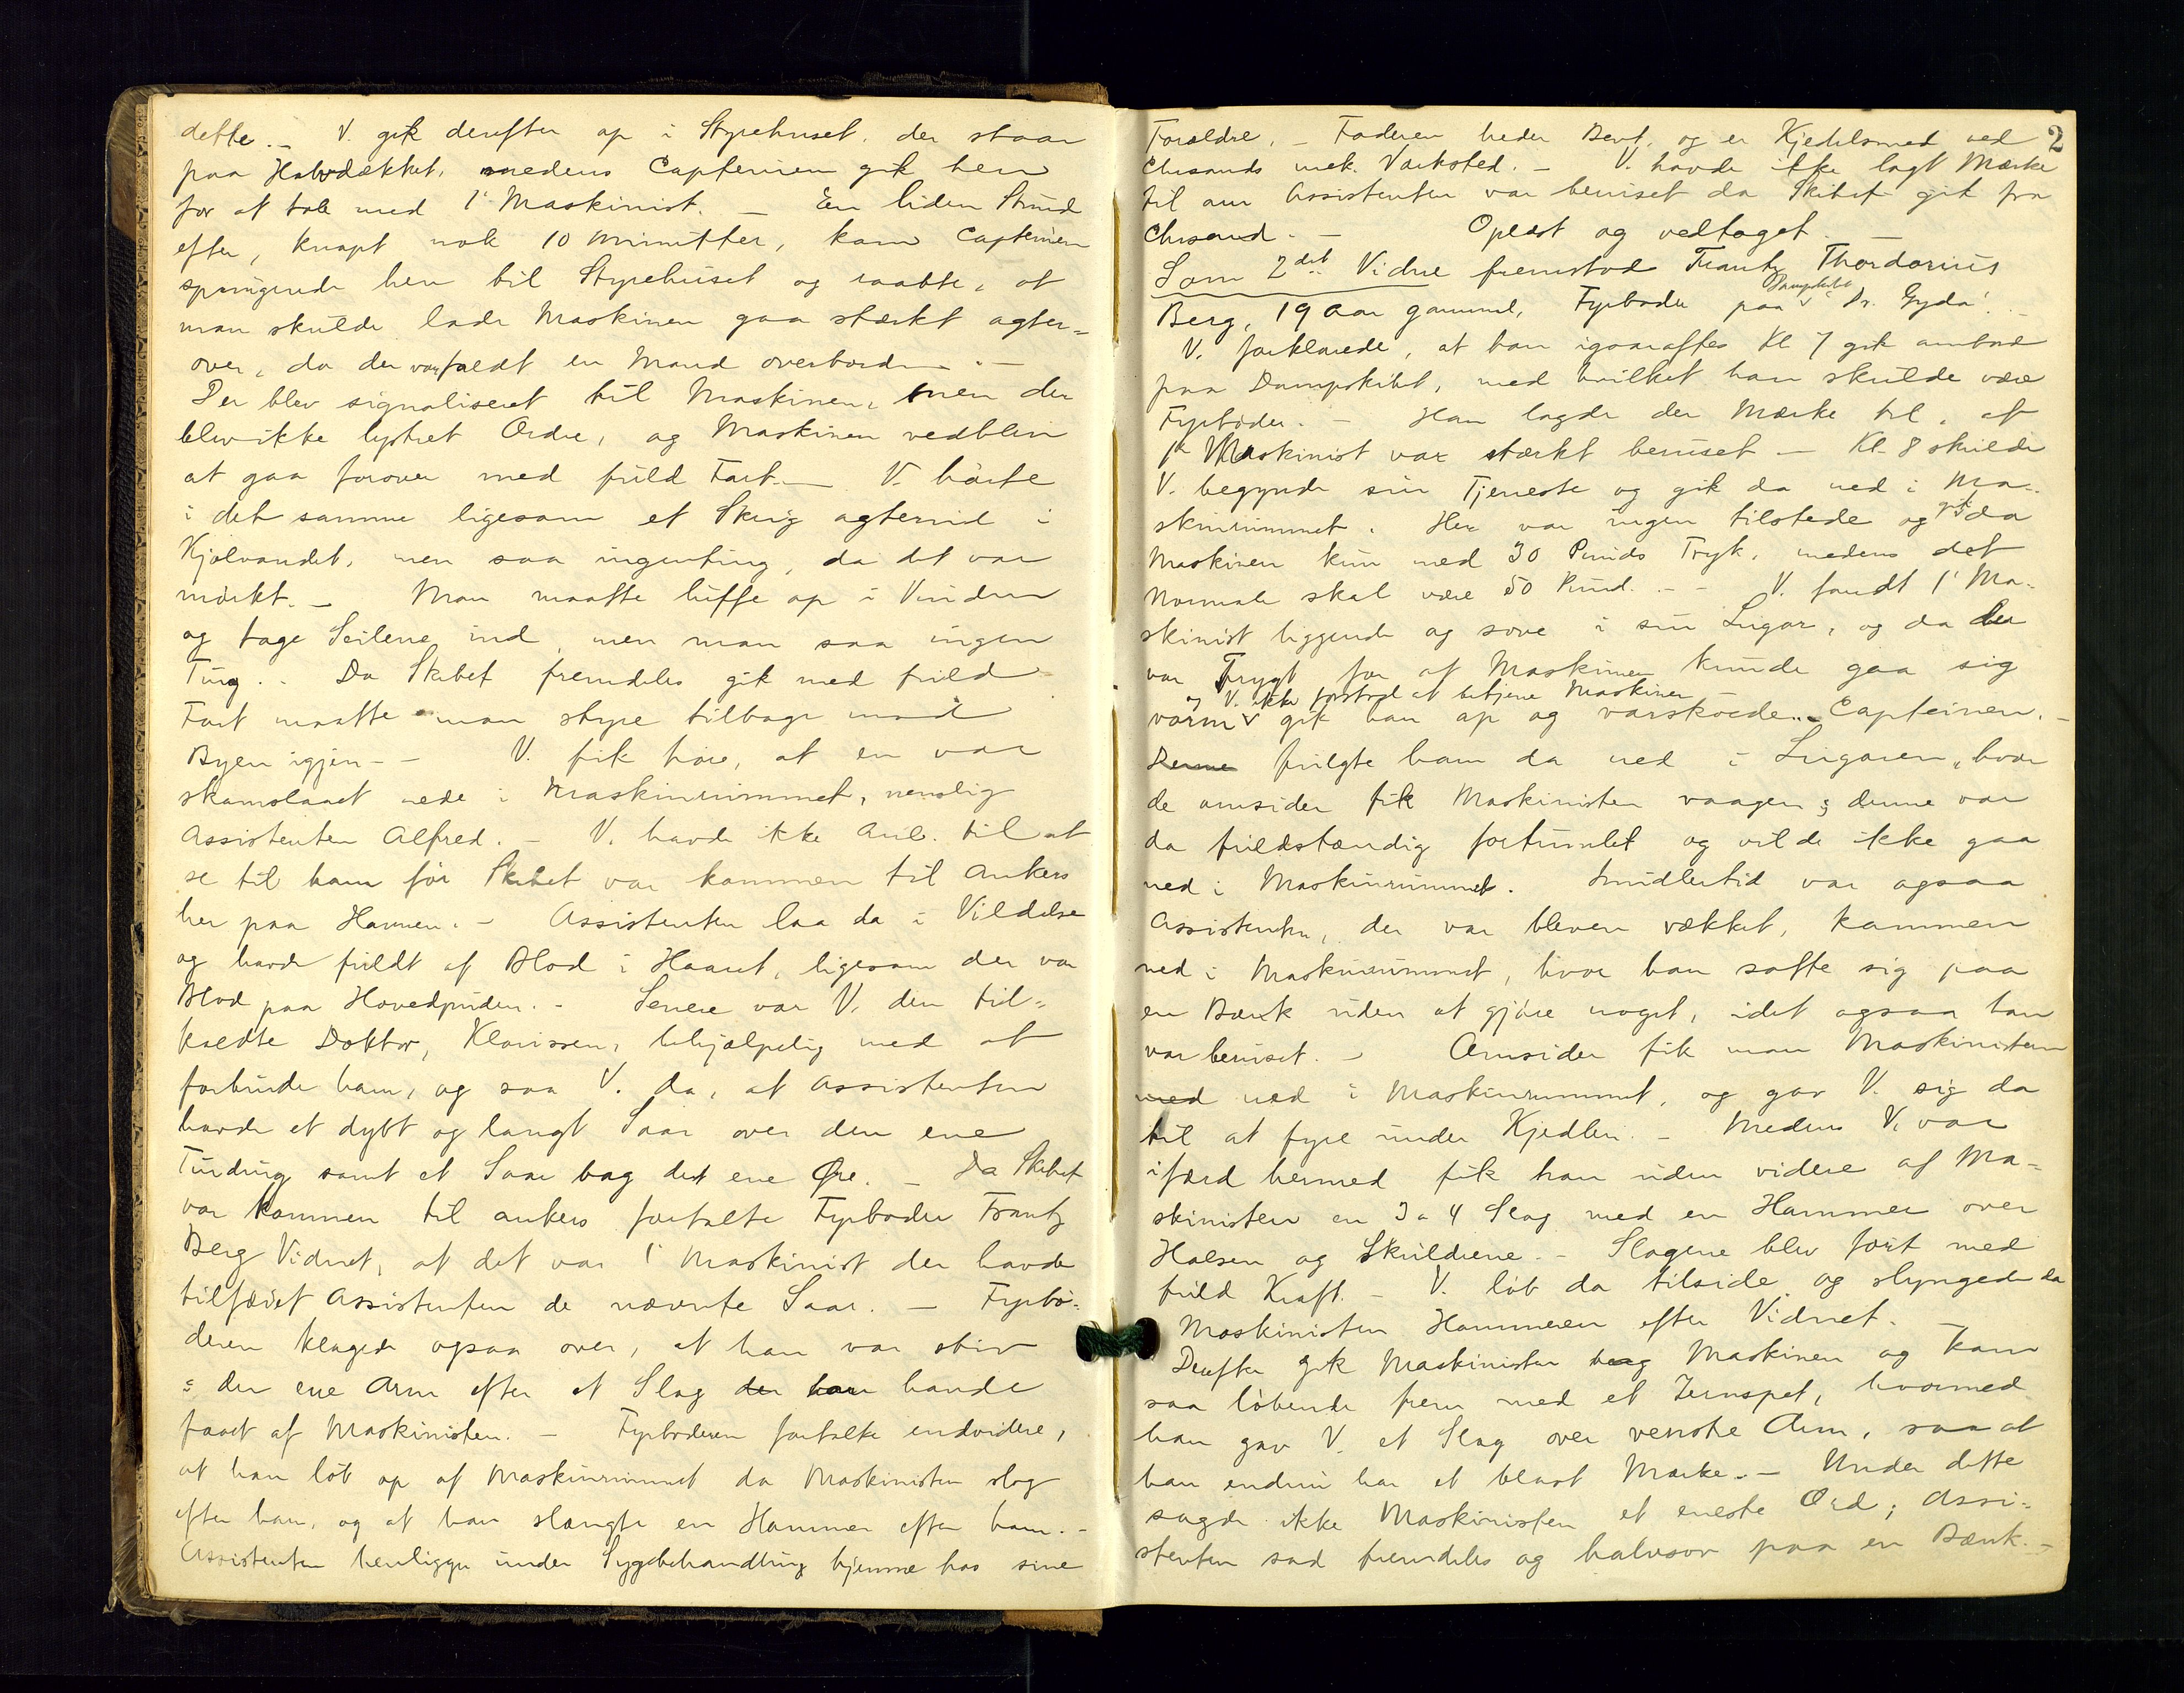 dette. - V. gik derefter op i Styrehuset, der staar
paa Halvdækket, medens Capteinen gik hen
for at tale med 1' Maskinist. - En liden Stund
efter, knapt nok 10 Minutter, kom Capteinen
springende hen til Styrehuset og raabte, at
man skulde lade Maskinen gaa stærkt agter=
over, da der var faldt en Mand overbord. -
Der blev signaliseret til Maskinen, men der
blev ikke lystret Ordre, og Maskinen vedblev
at gaa forover med fuld Fart. - V. hørte
i det samme ligesom et Skrig agterud i
Kjølvandet, men saa ingenting, da det var
mørkt. - Man maatte luffe op i Vinden
og tage Seilene ind, men man saa ingen
Ting. - Da Skibet fremdeles gik med fuld
Fart maatte man styre tilbage mod
Byen igjen - - V. fik høre, at en var
skamslaaet nede i Maskinrummet, nemlig
Assistenten Alfred. - V. havde ikke Anl. til at
se til ham før Skibet var kommen til Ankers
her paa Havnen. - Assistenten laa da i Vildelse
og havde fuldt af Blod i Haaret, ligesom der var
Blod paa Hovedpuden. - Senere var V. den til=
kaldte Doktor, Klarissen, behjælpelig med at
forbinde ham, og saa V. da, at Assistenten
havde et dybt og langt Saar over den ene
Tinding samt et Saar bag det ene Øre. - Da Skibet
var kommen til ankers fortalte Fyrbøder Frantz
Berg Vidnet, at det var 1' Maskinist der havde
tilføiet Assistenten de nævnte Saar. - Fyrbø=
deren klagede ogsaa over, at han var stiv
i den ene Arm efter et Slag der han havde
faaet af Maskinisten. - Fyrbøderen fortalte endvidere,
at han løb op af Maskinrummet da Maskinisten slog
efter ham, og at han slængte en Hammer efter ham. -
Assistenten henligger under Sygebehandling hjemme hos sine
2
Forældre. - Faderen heder Bert. og er Kjedelsmed ved
Chrsands mek. Værksted. - V. havde ikke lagt Mærke
til om Assistenten var beruset da Skibet gik fra
Chrsand. - Oplæst og vedtaget. -
Som 2det Vidne fremstod Frantz Thordorius
Berg, 19 Aar gammel, Fyrbøder paa Dampskibet Dr. Gyda! -
V. forklarede, at han igaaraftes Kl 7 gik ombord
paa Dampskibet, med hvilket han skulde være
Fyrbøder. - Han lagde da Mærke til, at
1te Maskinist var stærkt beruset - Kl. 8 skulde
V. begynde sin Tjeneste og gik da ned i Ma-
skinrummet. Her var ingen tilstede og gik da
Maskinen kun med 30 Punds Tryk, medens det
Normale skal være 50 Pund. - - V. fandt 1' Ma-
skinist liggende og sove i sin Lugar, og da der
var Frygt for at Maskinen kunde gaa sig
og V. ikke forstod at betjene Maskinen -
varm gik han op og varskoede Capteinen. -
Denne fulgte ham da ned i Lugaren, hvor
de omsider fik Maskinisten vaagen; denne var
da fuldstændig fortumlet og vilde ikke gaa
ned i Maskinrummet. Imidlertid var ogsaa
Assistenten, der var bleven vækket, kommen
ned i Maskinrummet, hvor han satte sig paa
en Bænk uden at gjøre noget, idet ogsaa han
var beruset. - Omsider fik man Maskinisten
med ned i Maskinrummet, og gav V. sig da
til at fyre under Kjedlen. - Medens V. var
ifærd hermed fik han uden videre af Ma=
skinisten en 3 a 4 Slag med en Hammer over
Halsen og Skuldrene. - Slagene blev ført med
fuld Kraft. - V. løb da tilside og slyngede da
Maskinisten Hammeren efter Vidnet. -
Derefter gik Maskinisten bag Maskinen og kom
saa løbende frem med et Jernspet, hvormed
han gav V. et Slag over venstre Arm, saa at
han endnu har et blaat Mærke. - Under dette
sagde ikke Maskinisten et eneste Ord; Assi=
stenten sad fremdeles og halvsov paa en Bænk. -